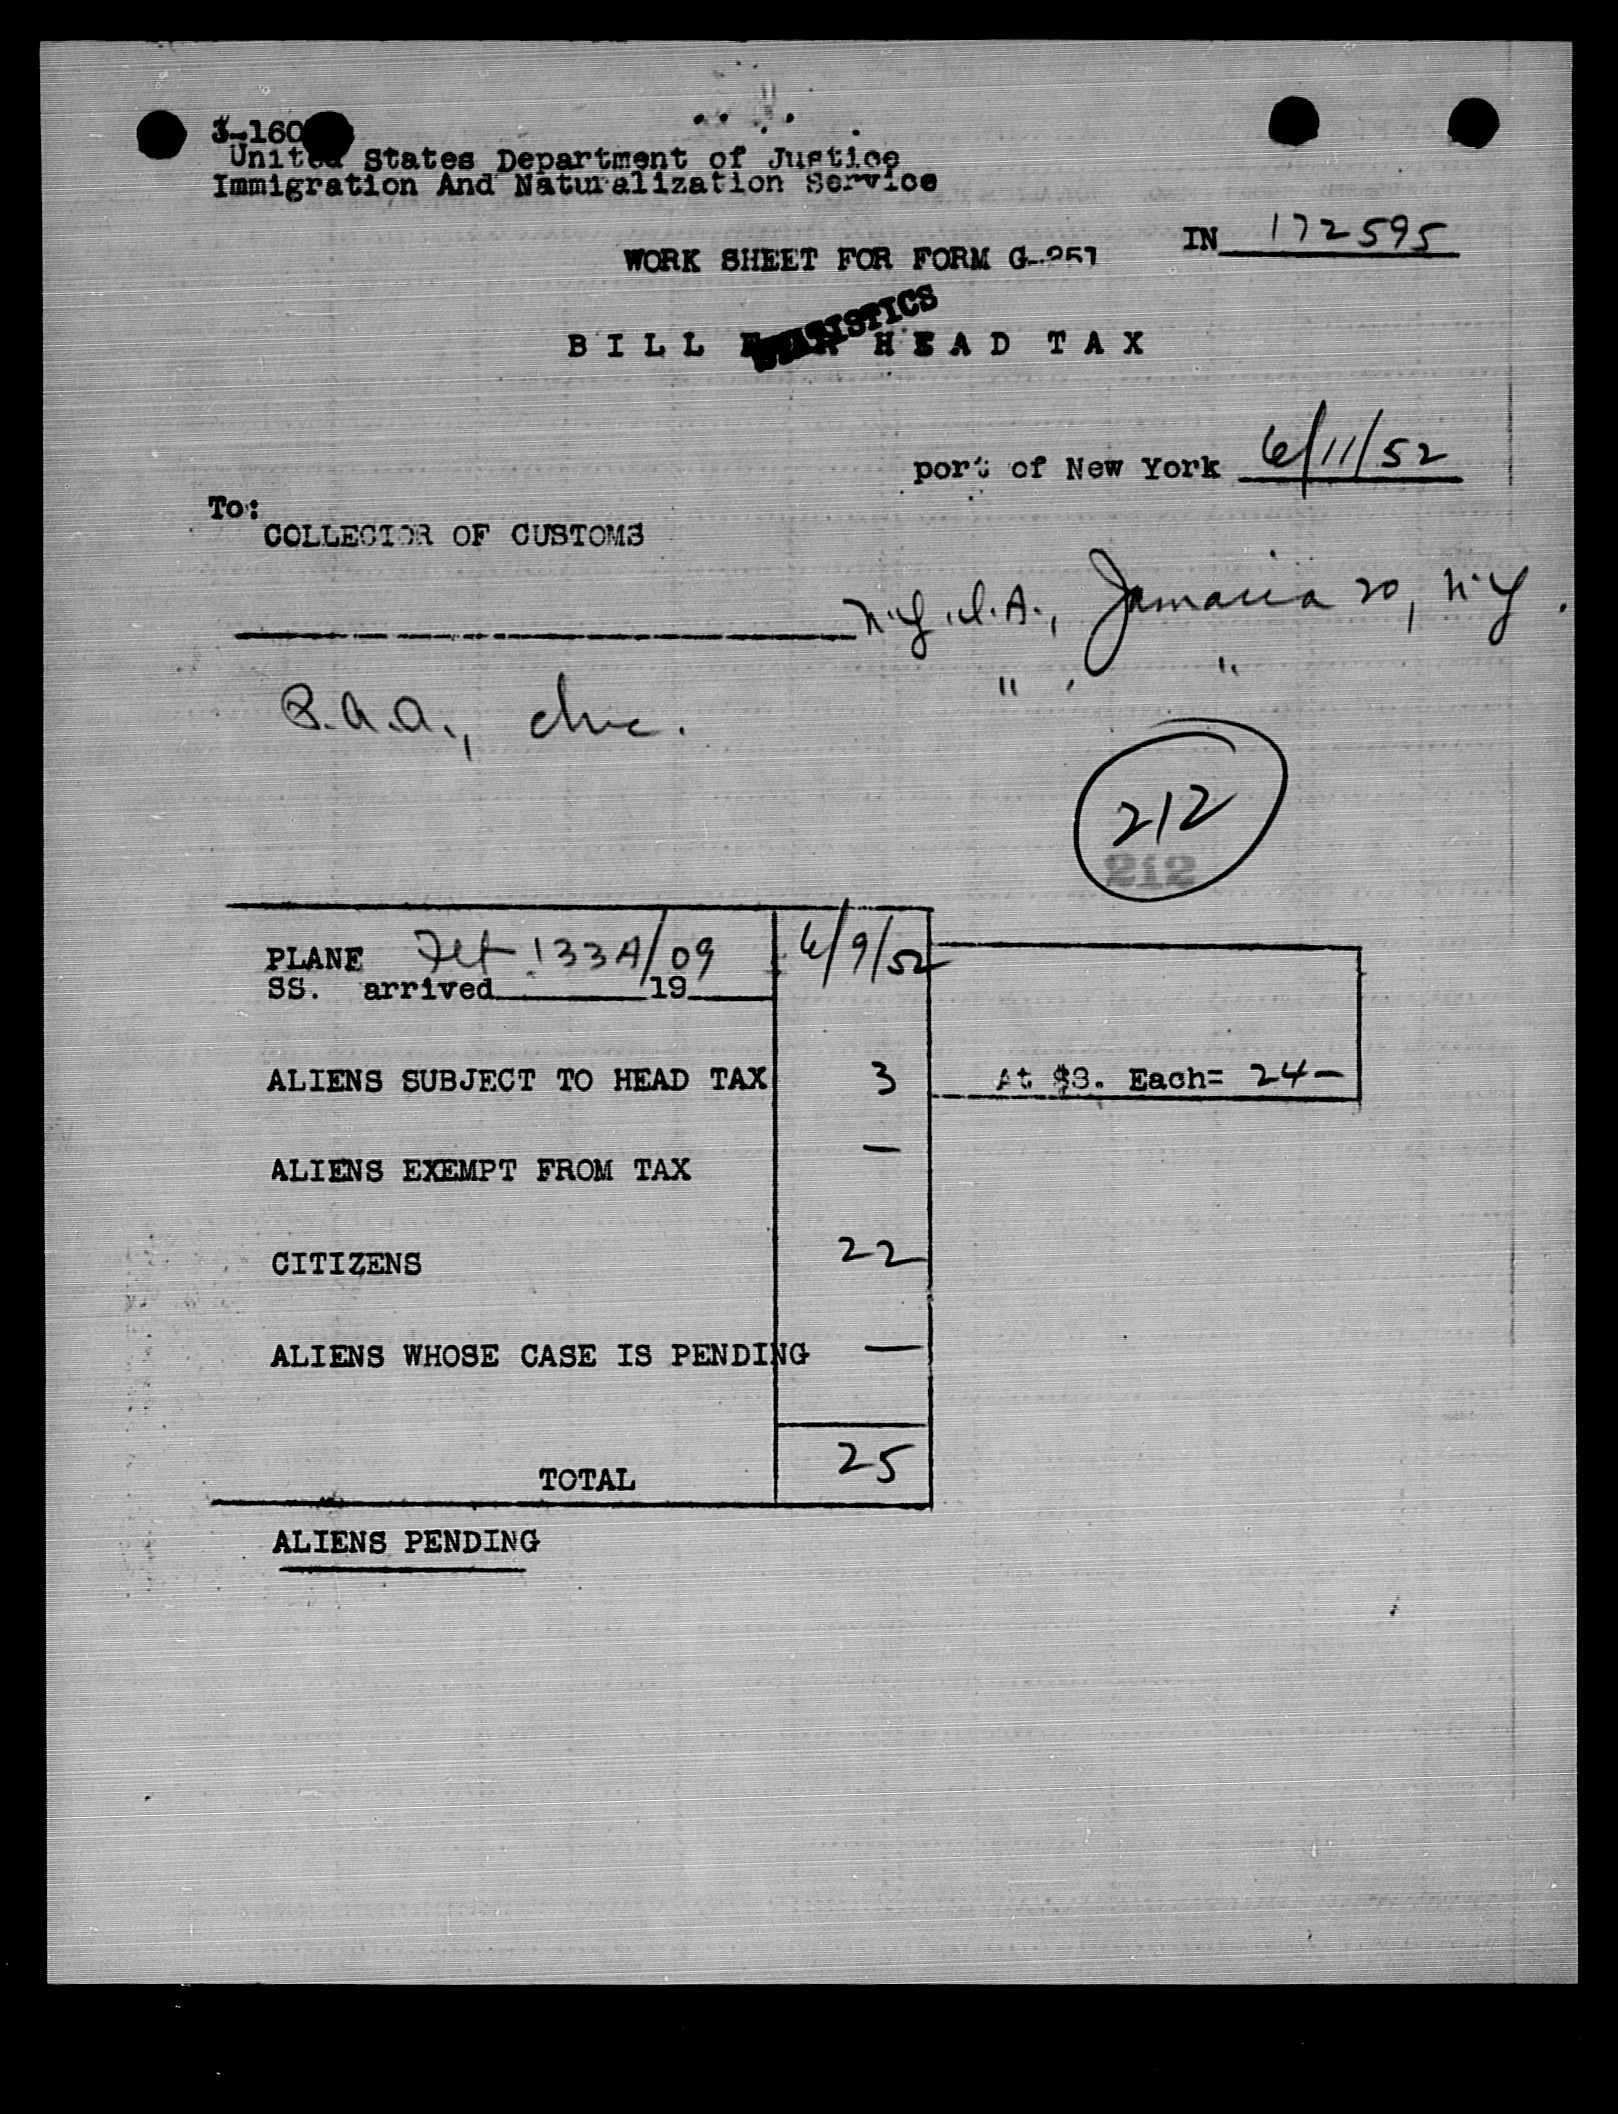 3-160
United States Department of Justice
Immigration And Naturalization Service
IN 172595
WORK SHEET FOR FORM G-251
STATISTICS
BILL FOR HEAD TAX
port of New York 6/11/52
To:
COLLECTOR OF CUSTOMS
N.Y.I.A., Jamaica 20, N.Y.
" , "
Inc.
212
212
PLANE Flt 133A/09 6/9/52
SS. arrived 19
ALIENS SUBJECT TO HEAD TAX 3 At $8. Each= 24-
ALIENS EXEMPT FROM TAX —
CITIZENS 22
ALIENS WHOSE CASE IS PENDING —
TOTAL 25
ALIENS PENDING